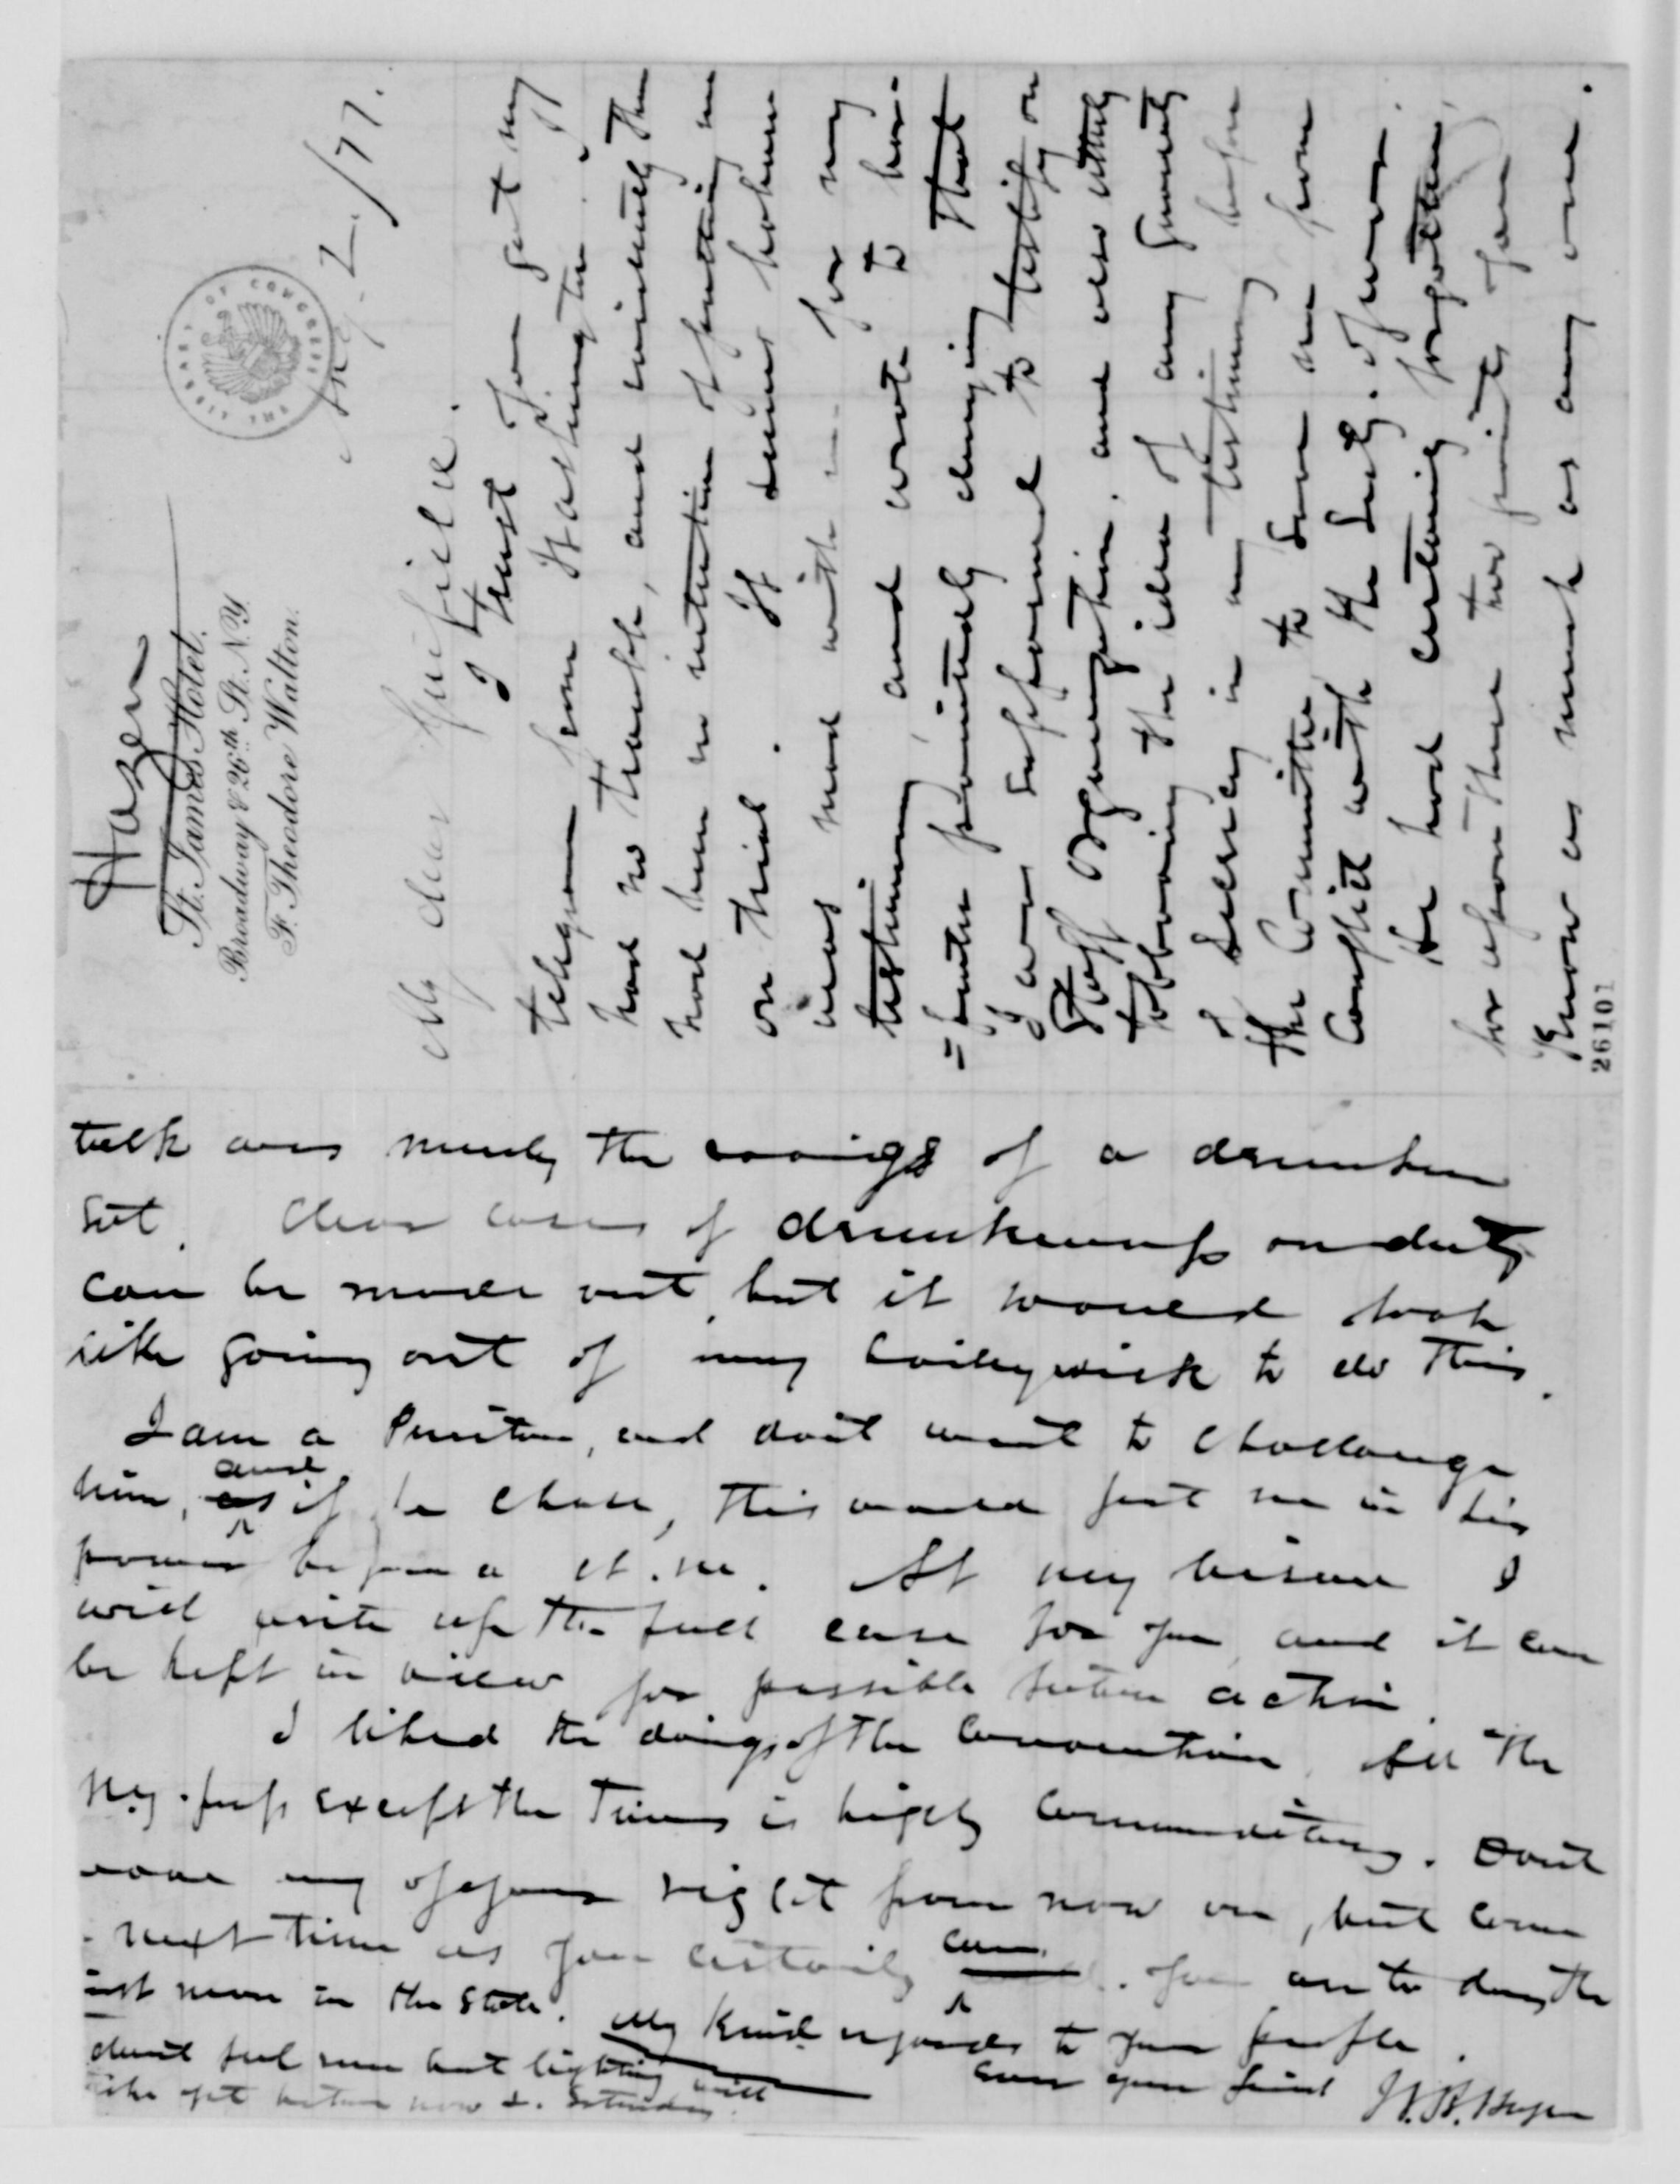 Hazen
St. James Hotel.
Broadway & 26th. St. N.Y.
F. Theodore Walton.
2/77.
THE LIBRARY OF CONGRESS
My dear Garfield.
I trust you got my
telegram from Washington. I
had no trouble, and evidently they
had been no intention of putting me
on trial. It seems
was mad with me for my
testimony, and wrote to
pointedly denying that
I was supposed to testify on
Staff organization, and also
the idea of any
secrecy in my testimony before
the Committee to save me from
conflict with the Secty. of war.
He had certainly forgotten,
for upon these two points you
know as much as any one.
26101
talk was merely the ravings of a drunken
sot. Clear cases of drunkenness on duty
can be made out, but it would look
like going out of my bailiwick to do this.
I am a Puritan, and don't want to challenge
him, and if he chose, this would put me in his
power before a ct. m. At my leisure I
will write up the full case for you and it can
be kept in view for possible future action.
I liked the doings of the Convention. All the
N.Y. press except the Times is highly commendatory. Don't
any of your right from now on, but come
next time as you certainly can. You are to day the
man in the State. My kind regards to your people.
Ever your friend W. B. Hazen
don't feel sure but lightning will